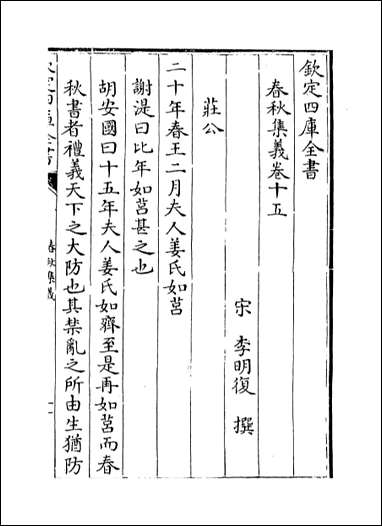 欽定四庫全書
春秋集義卷十五
宋 李明復 撰
莊公
二十年春王二月夫人姜氏如莒
謝湜曰比年如莒甚之也
胡安國曰十五年夫人姜氏如齊至是再如莒而春
秋書者禮義天下之大防也其禁亂之所由生猶防
春秋集義